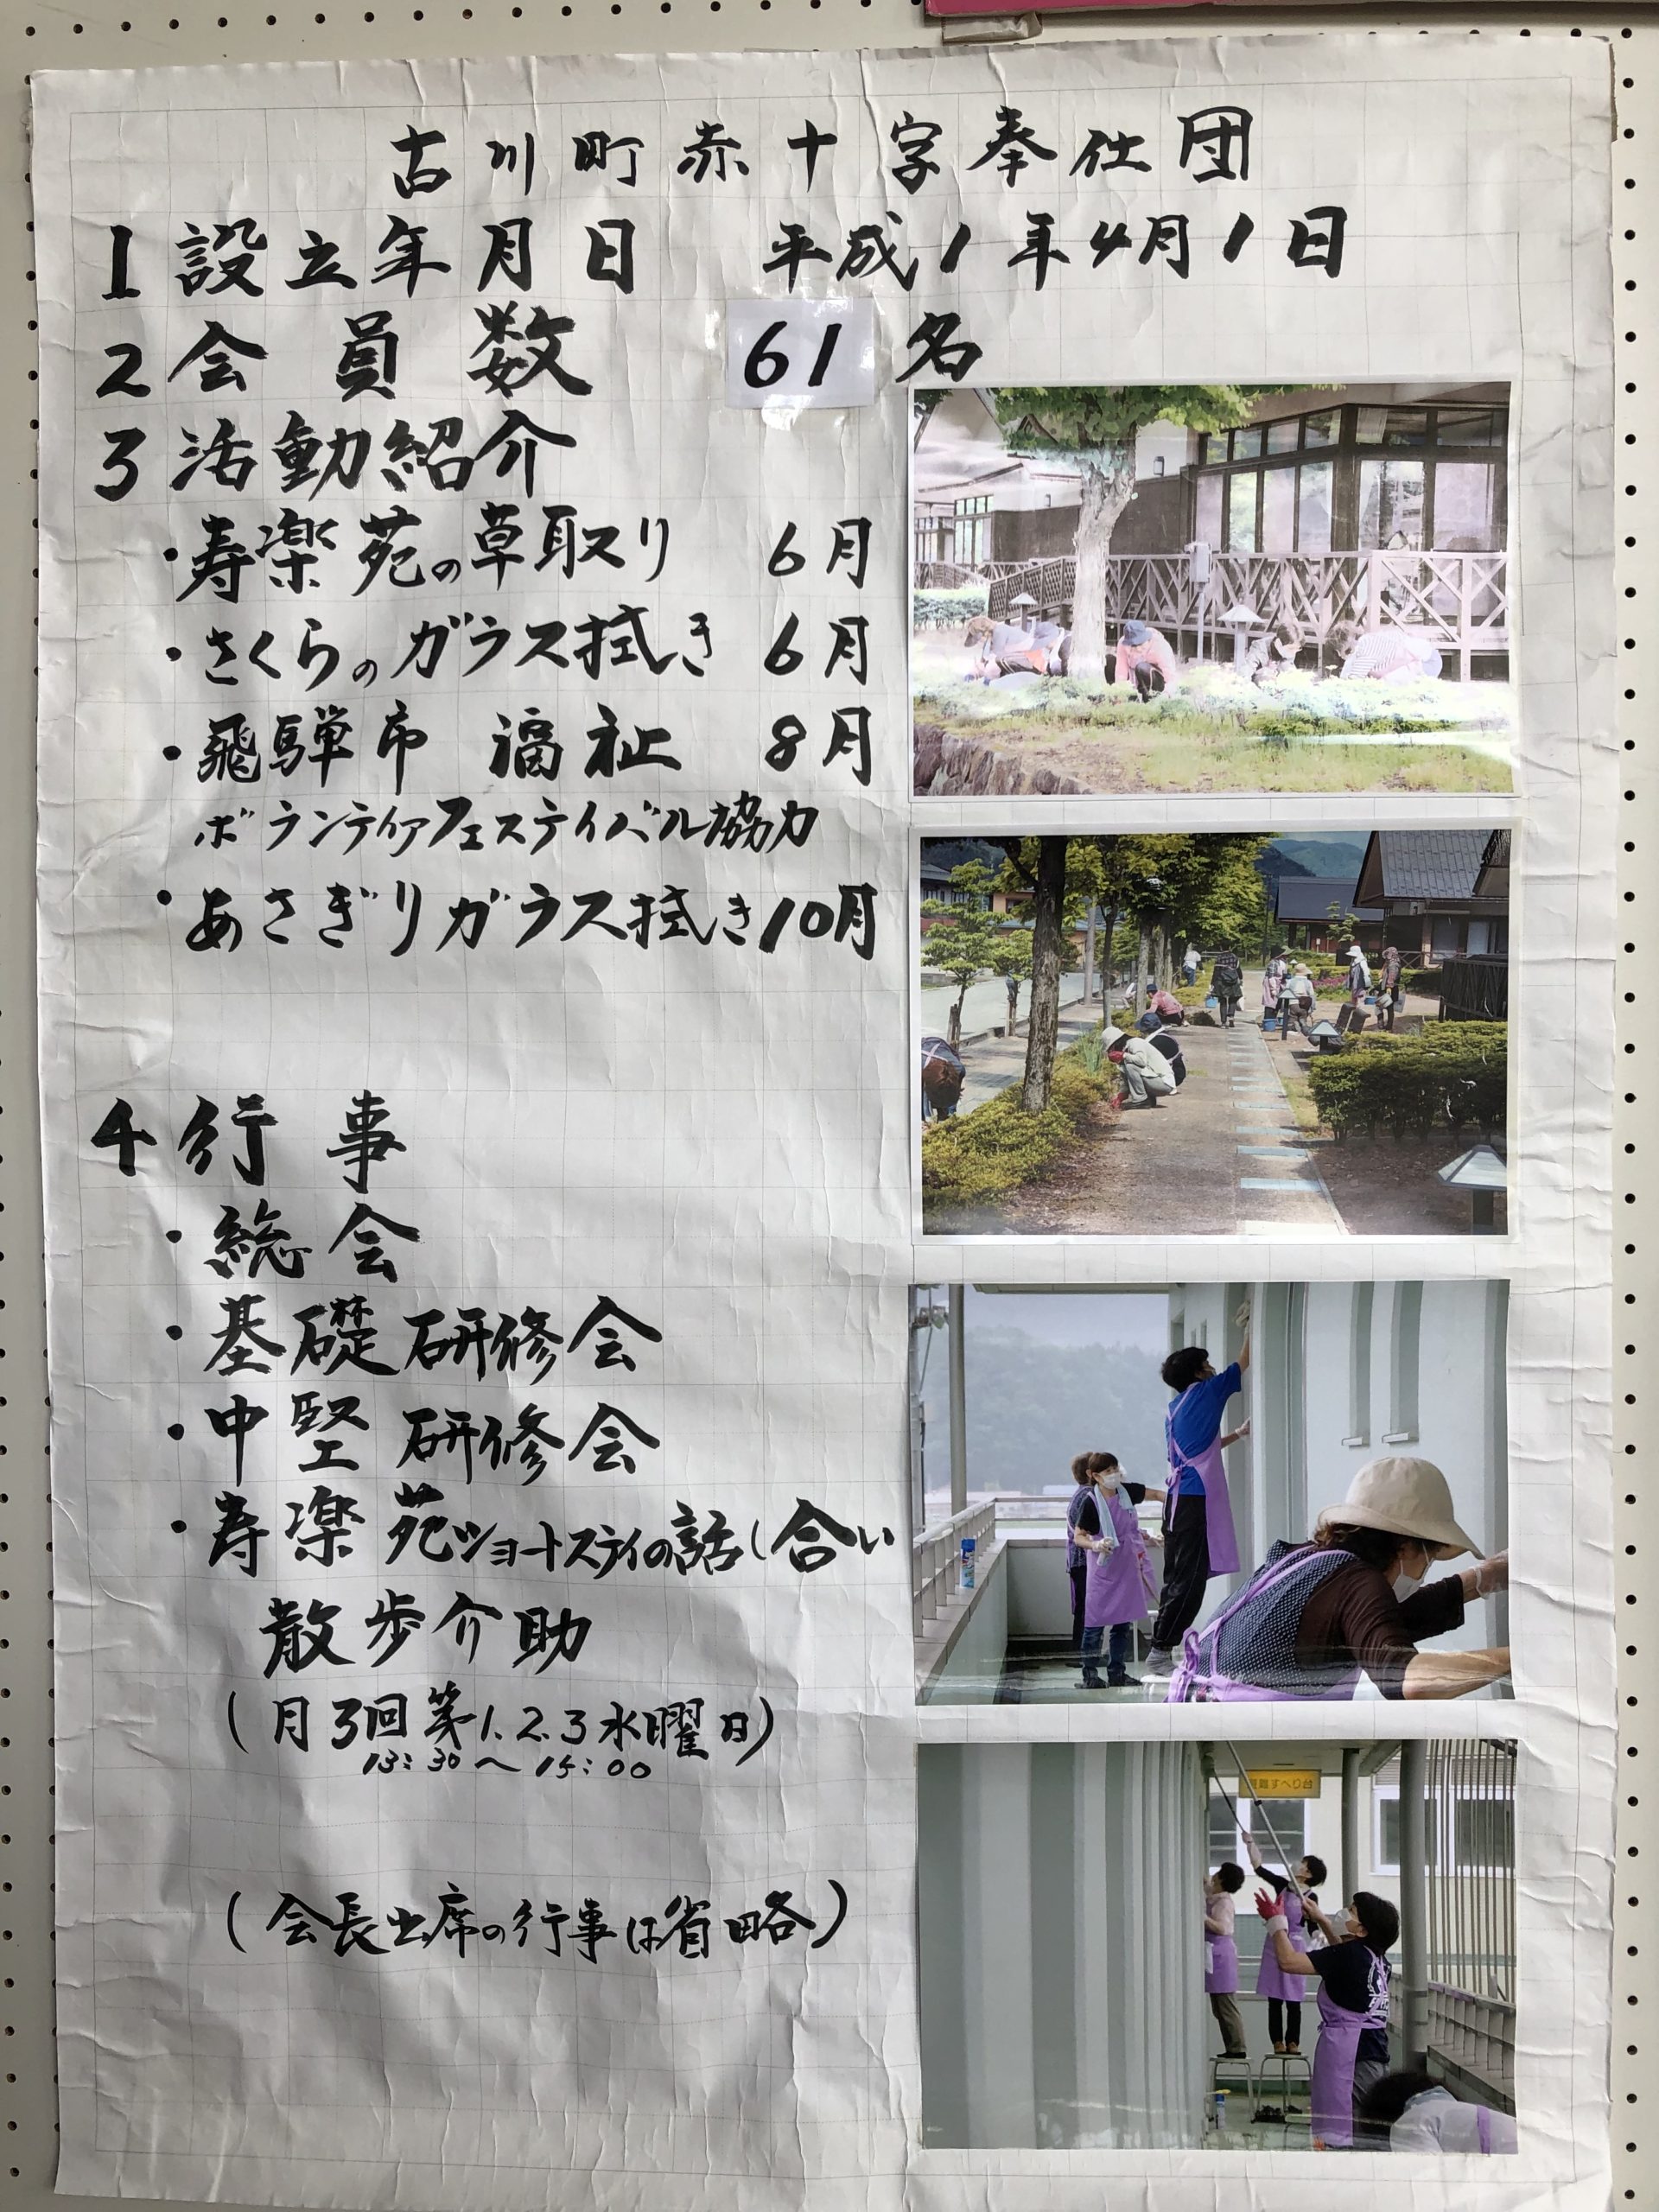 古川町赤十字奉仕団
1 設立年月日 平成1年4月1日
2 会員数 61名
3 活動紹介
・寿楽苑の草取り 6月
・さくらのガラス拭き 6月
・飛騨市 福祉 8月
ボランティアフェスティバル協力
・あさぎりガラス拭き 10月
4 行事
・総会
・基礎研修会
・中堅研修会
・寿楽苑ショートステイの話し合い
散歩介助
(月3回第1.2.3水曜日)
13:30〜15:00
(会長出席の行事は省略)
すべり台